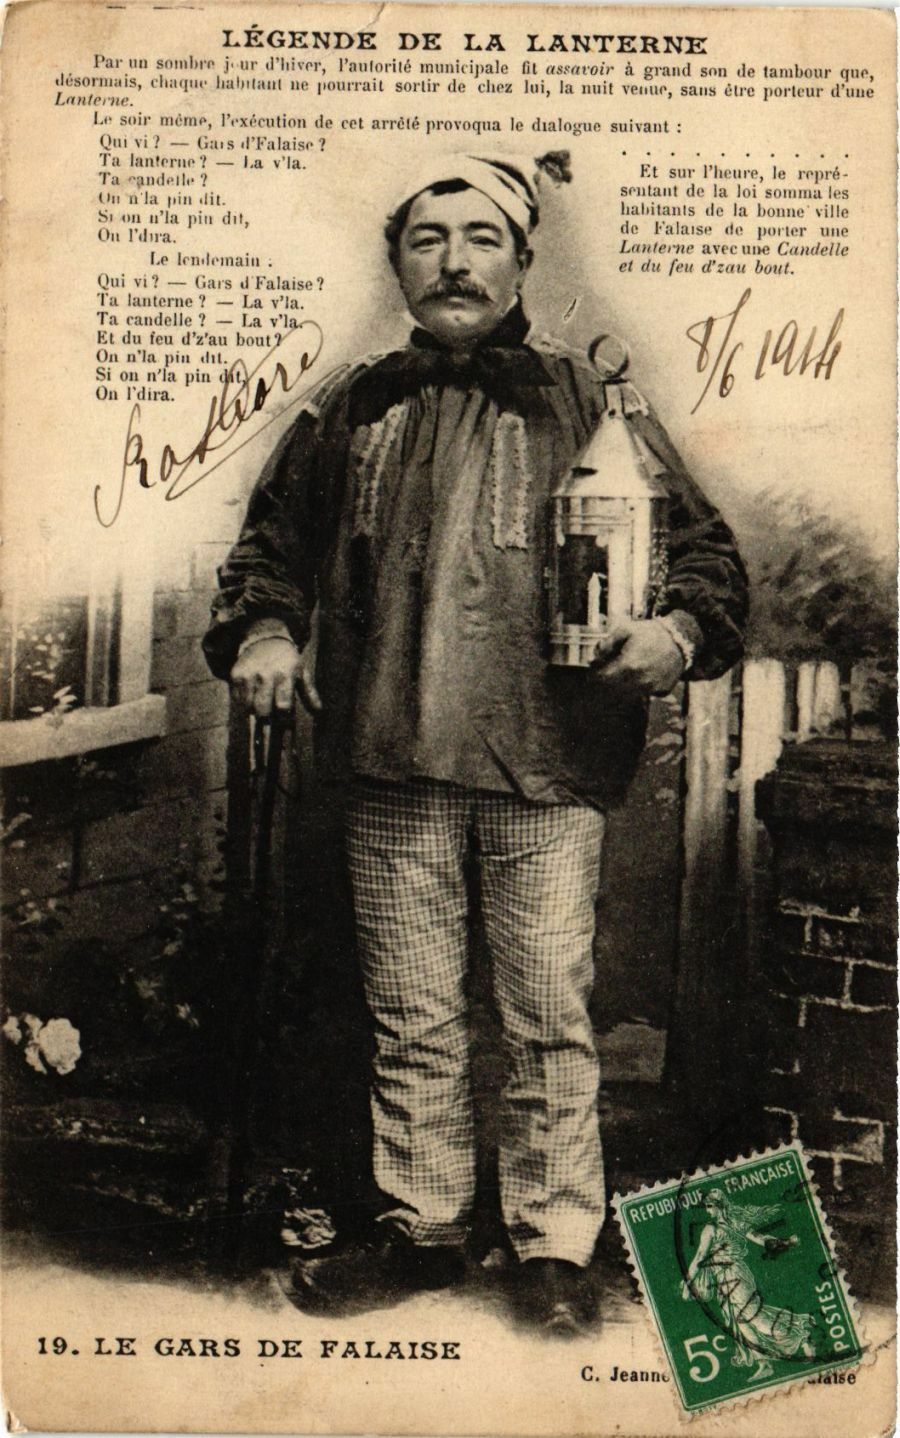 LÉGENDE DE LA LANTERNE
Par un sombre jour d'hiver, l'autorité municipale fit assavoir à grand son de tambour que,
désormais, chaque habitant ne pourrait sortir de chez lui, la nuit venue, sans être porteur d'une
Lanterne.
Le soir même, l'exécution de cet arrêté provoqua le dialogue suivant :
Qui vi ? — Gars d'Falaise ?
Ta lanterne ? — La v'la.
Ta candelle ?
On n'la pin dit.
Si on n'la pin dit,
On l'dira.
Le lendemain :
Qui vi ? — Gars d'Falaise ?
Ta lanterne ? — La v'la.
Ta candelle ? — La v'la.
Et du feu d'z'au bout ?
On n'la pin dit.
Si on n'la pin dit,
On l'dira.
. . . . . . . . . .
Et sur l'heure, le repré-
sentant de la loi somma les
habitants de la bonne ville
de Falaise de porter une
Lanterne avec une Candelle
et du feu d'zau bout.
8/6 1914
19. LE GARS DE FALAISE
C. Jeanne
alaise
REPUBLIQUE FRANÇAISE
POSTES
5c
14
LVADOS